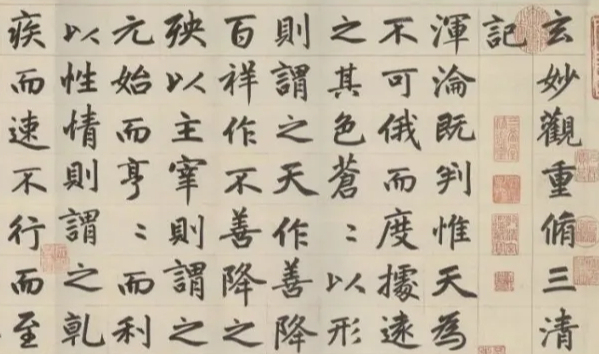 玄妙觀重脩三清
記
渾淪既判惟天為
不可俄而度據遠
之其色蒼〻以形
則謂之天作善降
百祥作不善降之
殃以主宰則謂之
元始而亨〻而利
以性情則謂之乹
疾而速不行而至